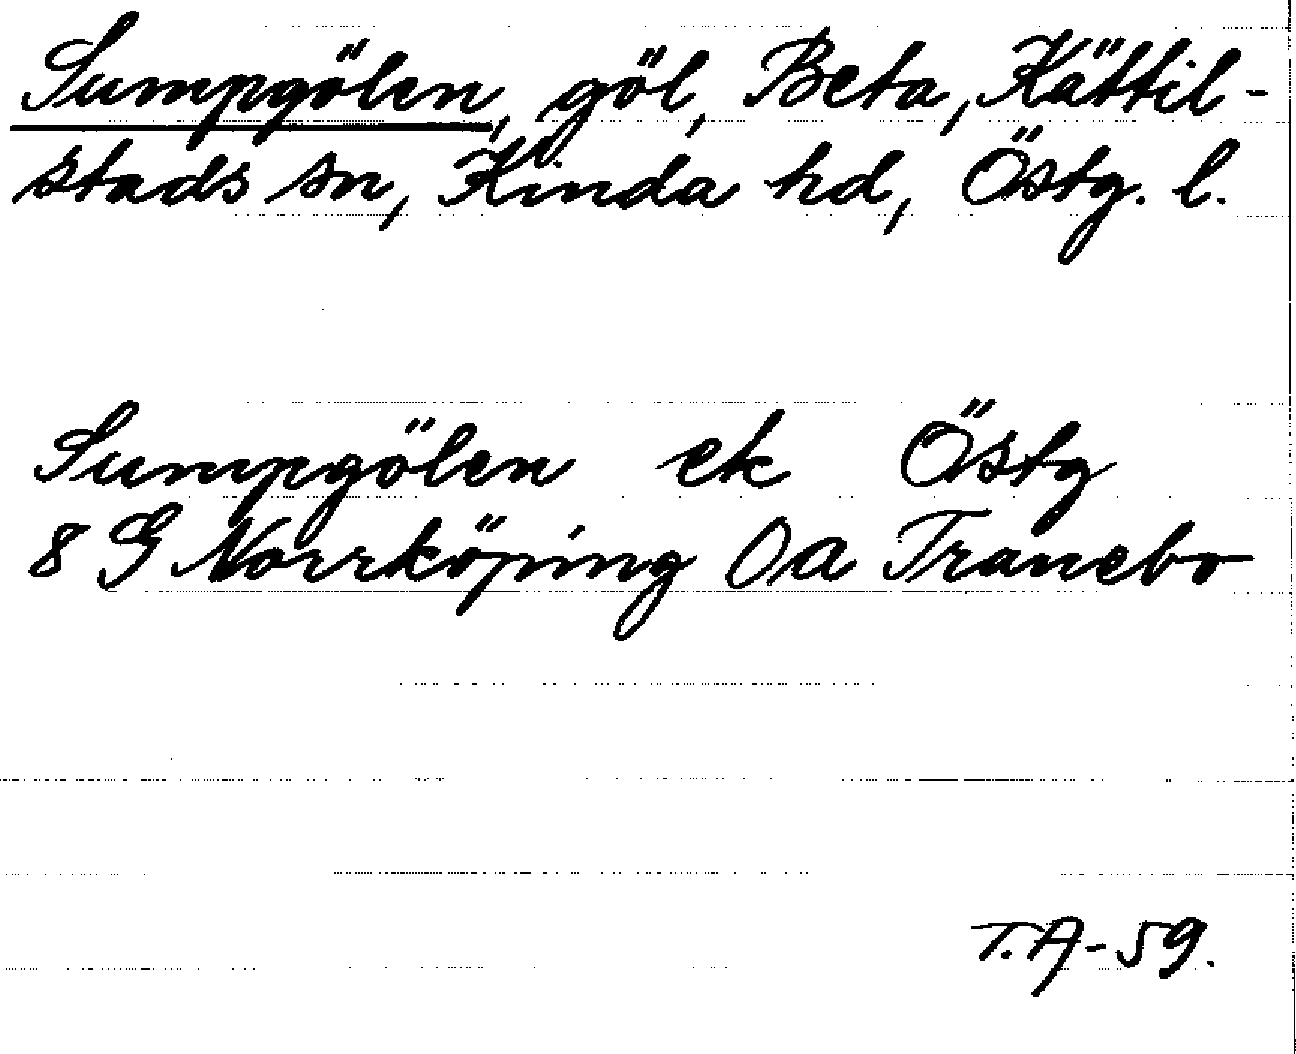 Sumpgölen, göl, Beta, Kättil-
stads sn, Kinda hd, Östg. l.
Sumpgölen ek Östg
8 G Norrköping 0a Tranebo
T.A-59.